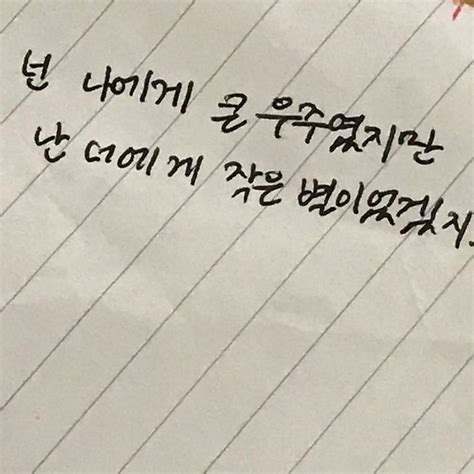 넌 나에게 큰 우주였지만
난 너에게 작은 별이었겠지.